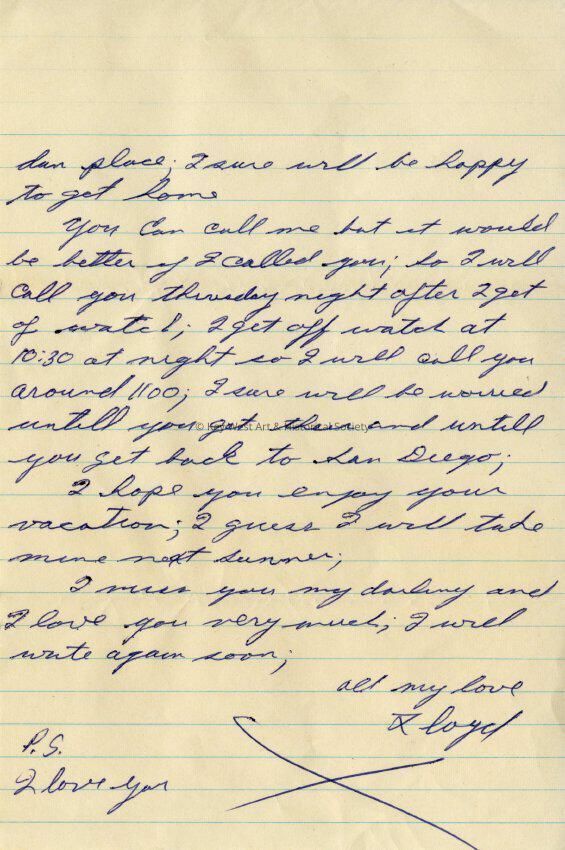 dam place; I sure will be happy
to get home
You Can call me but it would
be better if I called you; so I will
call you thursday night after I get
of watch; I get off watch at
10:30 at night so I will call you
around 1100; I sure will be worried
untill you get there and untill
© Key West Art & Historical Society
you get back to San Diego;
I hope you enjoy your
vacation; I guess I will take
mine next summer;
I miss you my darling and
I love you very much; I will
write again soon;
all my love
Floyd
P.S.
I love you